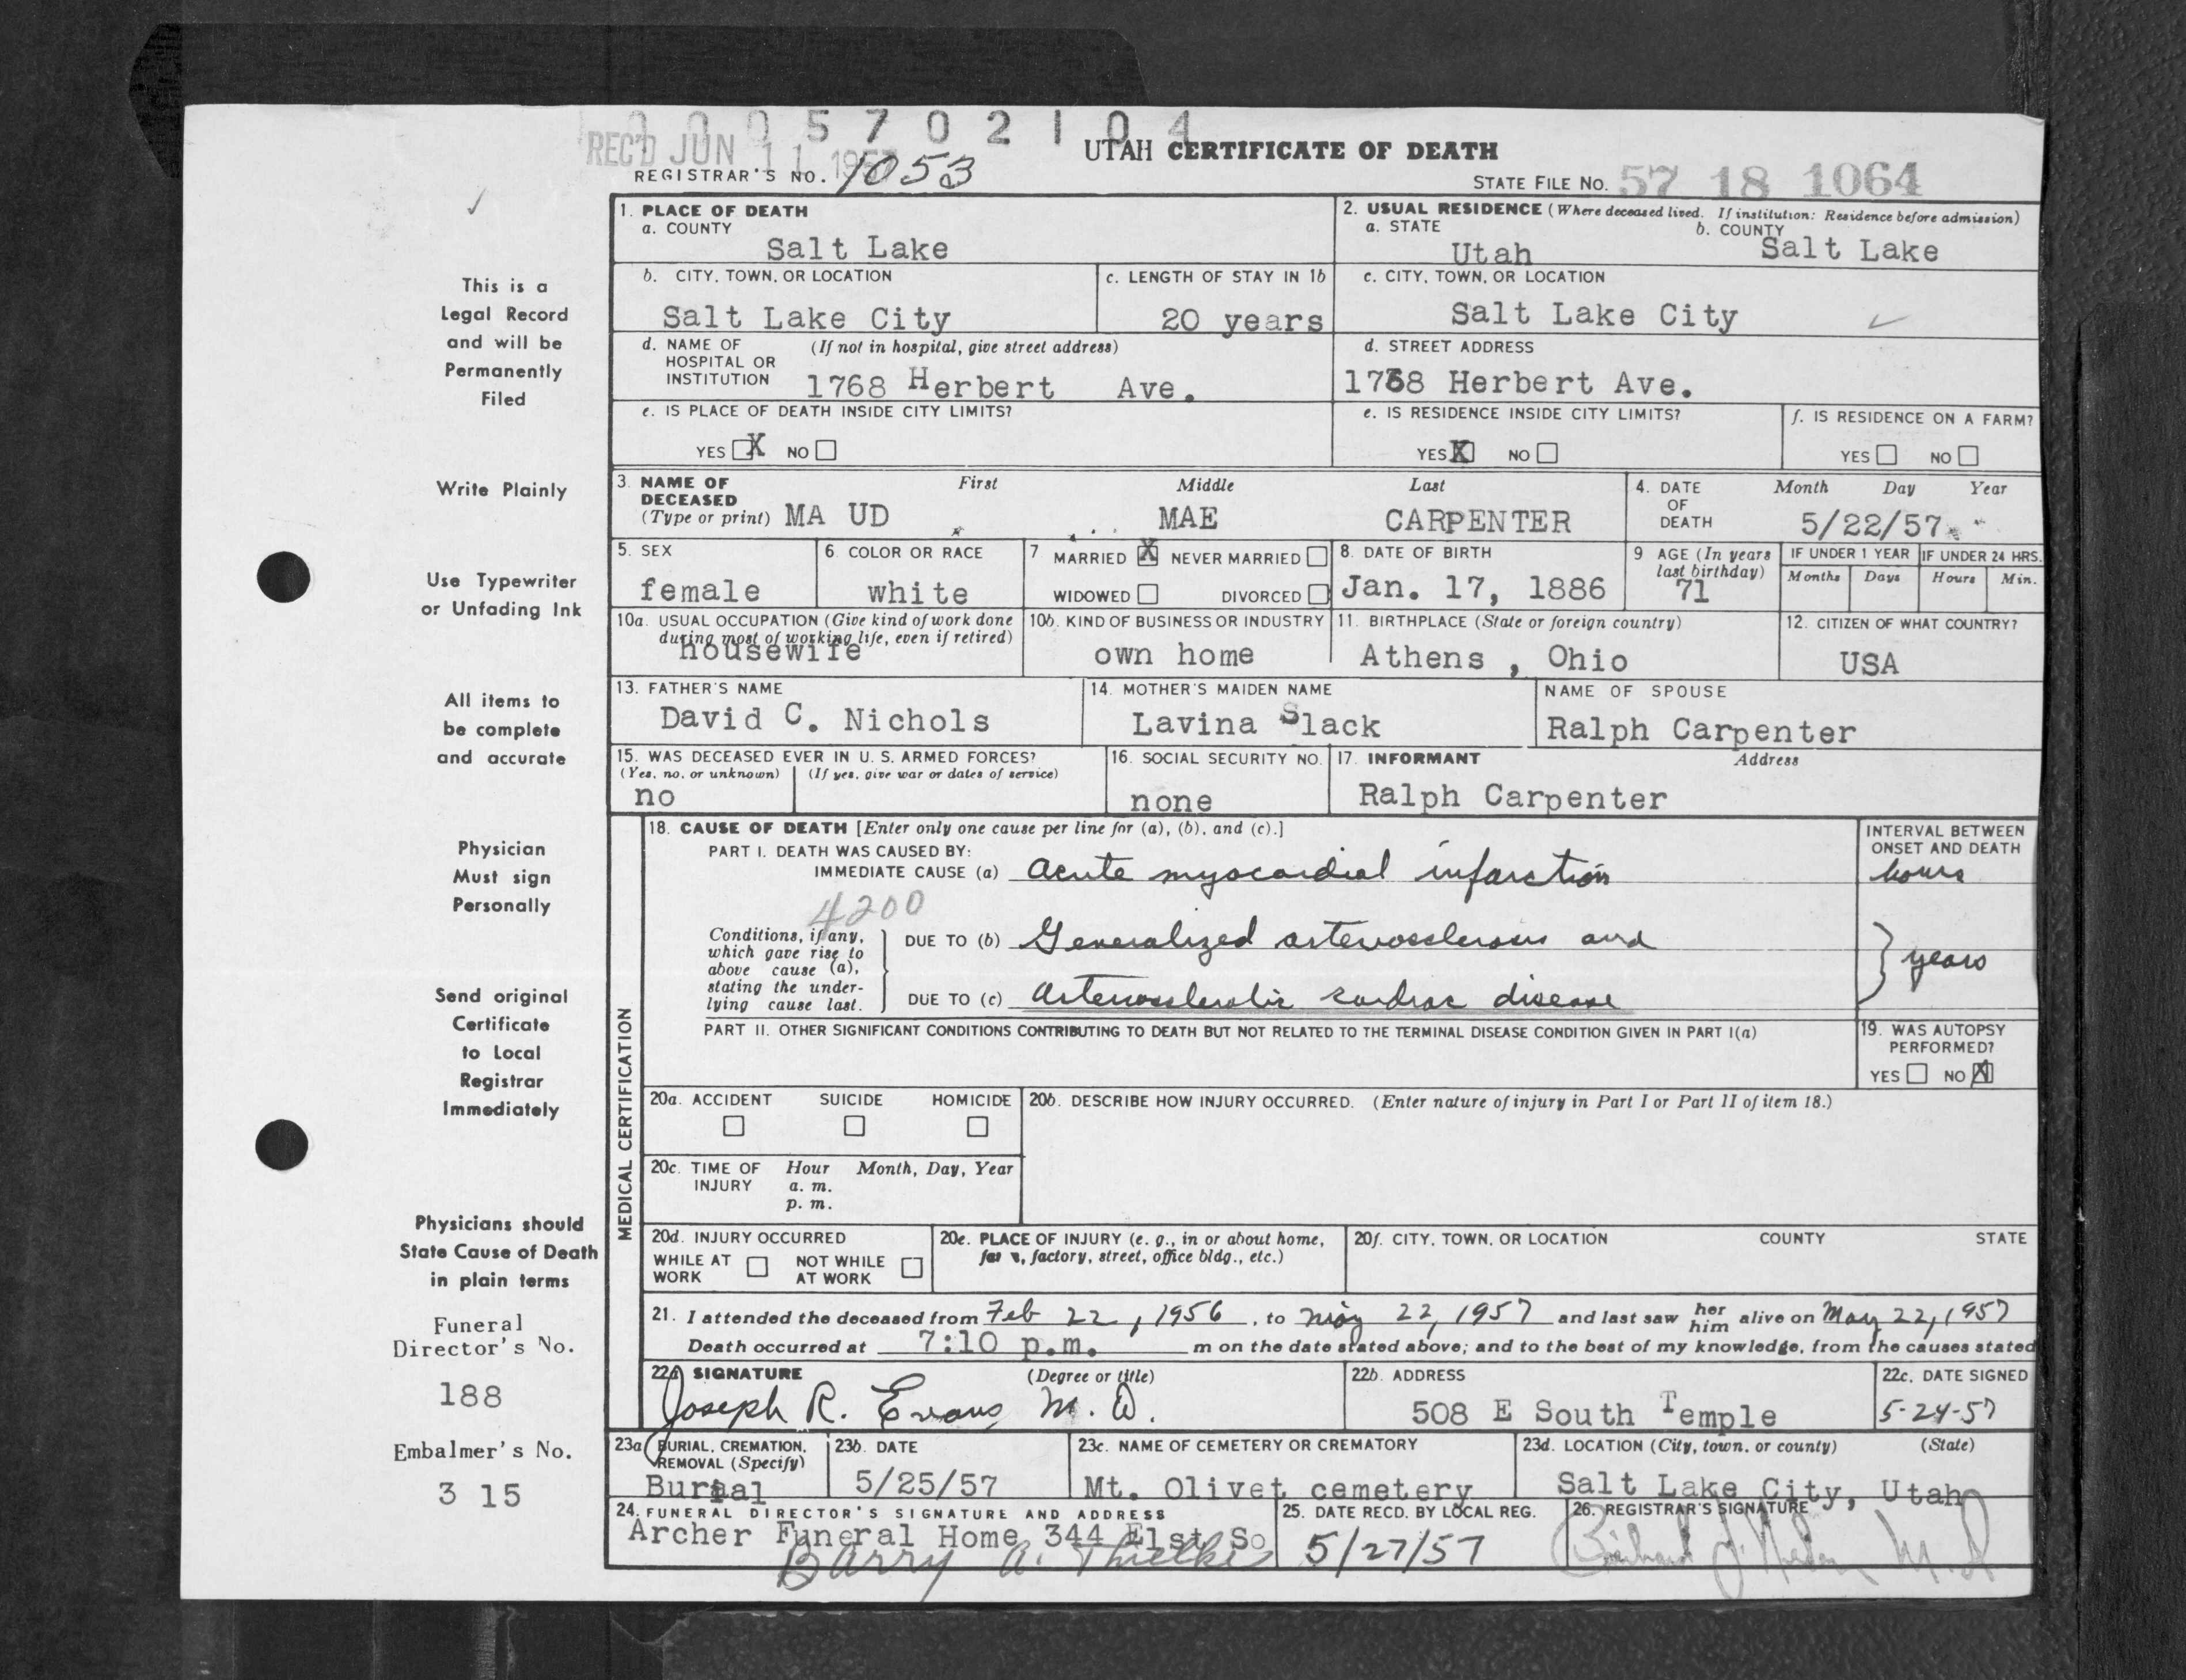 0005702104
REC'D JUN 11 1957
UTAH CERTIFICATE OF DEATH
REGISTRAR'S NO. 1053
STATE FILE NO. 57 18 1064
This is a
Legal Record
and will be
Permanently
Filed
Write Plainly
Use Typewriter
or Unfading Ink
All items to
be complete
and accurate
Physician
Must sign
Personally
Send original
Certificate
to Local
Registrar
Immediately
Physicians should
State Cause of Death
in plain terms
Funeral
Director's No.
188
Embalmer's No.
3 15
1. PLACE OF DEATH
a. COUNTY
Salt Lake
2. USUAL RESIDENCE (Where deceased lived. If institution: Residence before admission)
a. STATE
Utah
b. COUNTY
Salt Lake
b. CITY, TOWN, OR LOCATION
Salt Lake City
c. LENGTH OF STAY IN 1b
20 years
c. CITY, TOWN, OR LOCATION
Salt Lake City
d. NAME OF HOSPITAL OR INSTITUTION
(If not in hospital, give street address)
1768 Herbert Ave.
d. STREET ADDRESS
1768 Herbert Ave.
e. IS PLACE OF DEATH INSIDE CITY LIMITS?
YES X NO
e. IS RESIDENCE INSIDE CITY LIMITS?
YES X NO
f. IS RESIDENCE ON A FARM?
YES NO
3. NAME OF DECEASED (Type or print)
First Middle Last
MA UD MAE CARPENTER
4. DATE OF DEATH
Month Day Year
5/22/57
5. SEX
female
6. COLOR OR RACE
white
7 MARRIED X NEVER MARRIED
WIDOWED DIVORCED
8. DATE OF BIRTH
Jan. 17, 1886
9 AGE (In years last birthday)
71
IF UNDER 1 YEAR
Months Days
IF UNDER 24 HRS.
Hours Min.
10a. USUAL OCCUPATION (Give kind of work done during most of working life, even if retired)
housewife
10b. KIND OF BUSINESS OR INDUSTRY
own home
11. BIRTHPLACE (State or foreign country)
Athens , Ohio
12. CITIZEN OF WHAT COUNTRY?
USA
13. FATHER'S NAME
David C. Nichols
14. MOTHER'S MAIDEN NAME
Lavina Slack
NAME OF SPOUSE
Ralph Carpenter
15. WAS DECEASED EVER IN U. S. ARMED FORCES?
(Yes, no, or unknown) (If yes, give war or dates of service)
no
16. SOCIAL SECURITY NO.
none
17. INFORMANT Address
Ralph Carpenter
MEDICAL CERTIFICATION
18. CAUSE OF DEATH [Enter only one cause per line for (a), (b), and (c).]
PART I. DEATH WAS CAUSED BY:
IMMEDIATE CAUSE (a) Acute myocardial infarction
INTERVAL BETWEEN ONSET AND DEATH
hours
4200
Conditions, if any, which gave rise to above cause (a), stating the underlying cause last.
DUE TO (b) Generalized arteriosclerosis and
DUE TO (c) Arteriosclerotic cardiac disease
years
PART II. OTHER SIGNIFICANT CONDITIONS CONTRIBUTING TO DEATH BUT NOT RELATED TO THE TERMINAL DISEASE CONDITION GIVEN IN PART I(a)
19. WAS AUTOPSY PERFORMED?
YES NO X
20a. ACCIDENT SUICIDE HOMICIDE
20b. DESCRIBE HOW INJURY OCCURRED. (Enter nature of injury in Part I or Part II of item 18.)
20c. TIME OF INJURY
Hour Month, Day, Year
a. m.
p. m.
20d. INJURY OCCURRED
WHILE AT WORK NOT WHILE AT WORK
20e. PLACE OF INJURY (e. g., in or about home, farm, factory, street, office bldg., etc.)
20f. CITY, TOWN, OR LOCATION COUNTY STATE
21. I attended the deceased from Feb 22, 1956, to May 22, 1957 and last saw her him alive on May 22, 1957
Death occurred at 7:10 p.m. m on the date stated above; and to the best of my knowledge, from the causes stated
22a SIGNATURE (Degree or title)
Joseph R. Evans M. D.
22b. ADDRESS
508 E South Temple
22c. DATE SIGNED
5-24-57
23a BURIAL, CREMATION, REMOVAL (Specify)
Burial
23b. DATE
5/25/57
23c. NAME OF CEMETERY OR CREMATORY
Mt. Olivet cemetery
23d. LOCATION (City, town, or county) (State)
Salt Lake City, Utah
24. FUNERAL DIRECTOR'S SIGNATURE AND ADDRESS
Archer Funeral Home 344 E1st So
Barry A.
25. DATE RECD. BY LOCAL REG.
5/27/57
26. REGISTRAR'S SIGNATURE
M.D.